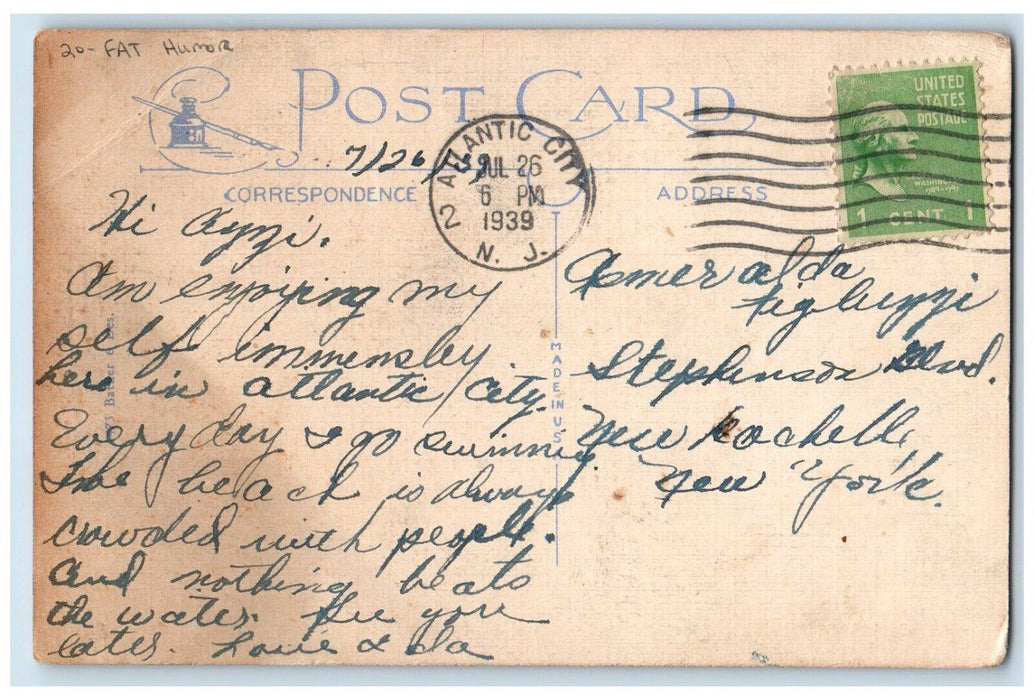 20- FAT Humor
POST CARD
7/26/39
CORRESPONDENCE
ADDRESS
ATLANTIC CITY
2
JUL 26
6 PM
1939
N. J.
UNITED
STATES
POSTAGE
WASHINGTON
1 CENT 1
MADE IN U.S.
Hi
Am enjoying my
self immensley
here in atlantic City.
Every day I go swimming
The beach is always
crowded with people.
and nothing beats
the water. See you
later. Louie & Ida
Esmeralda
Stephenson Blvd.
New Rochelle
New York.